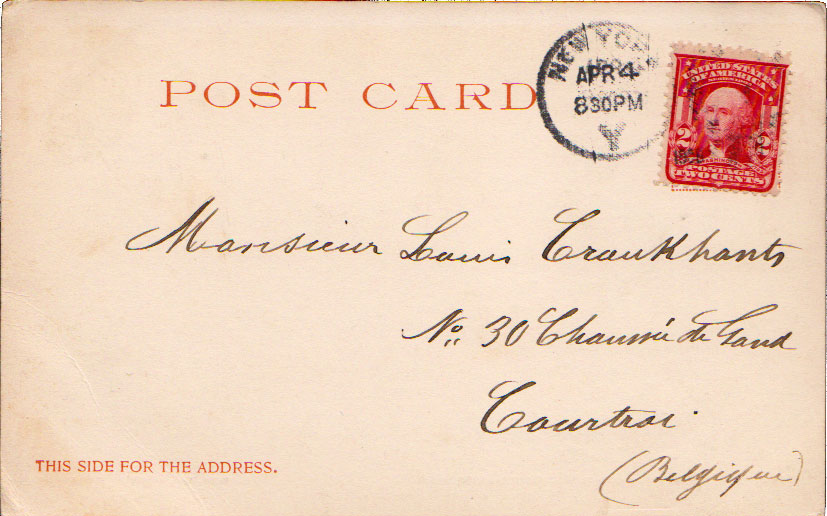 POST CARD
NEW YORK
APR 4
830PM
Y
UNITED STATES
OF AMERICA
2 2
WASHINGTON
POSTAGE
TWO CENTS
Monsieur Louis
No. 30 Chaussée de Gand
Courtrai
(Belgique)
THIS SIDE FOR THE ADDRESS.